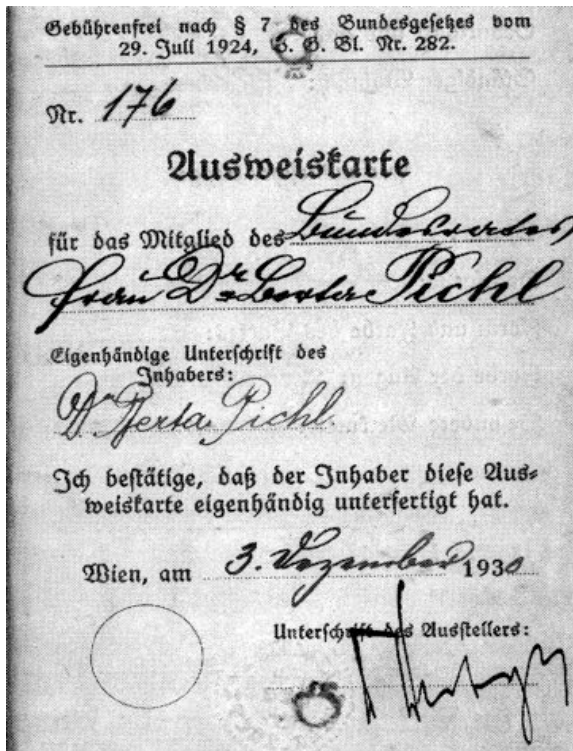 Gebührenfrei nach § 7 des Bundesgesetzes vom
29. Juli 1924, B. G. Bl. Nr. 282.
Nr. 176
Ausweiskarte
für das Mitglied des Bundesrates,
Frau Dr Berta Pichl
Eigenhändige Unterschrift des
Inhabers:
Dr Berta Pichl
Ich bestätige, daß der Inhaber diese Aus-
weiskarte eigenhändig unterfertigt hat.
Wien, am 3. Dezember 1930
Unterschrift des Ausstellers: